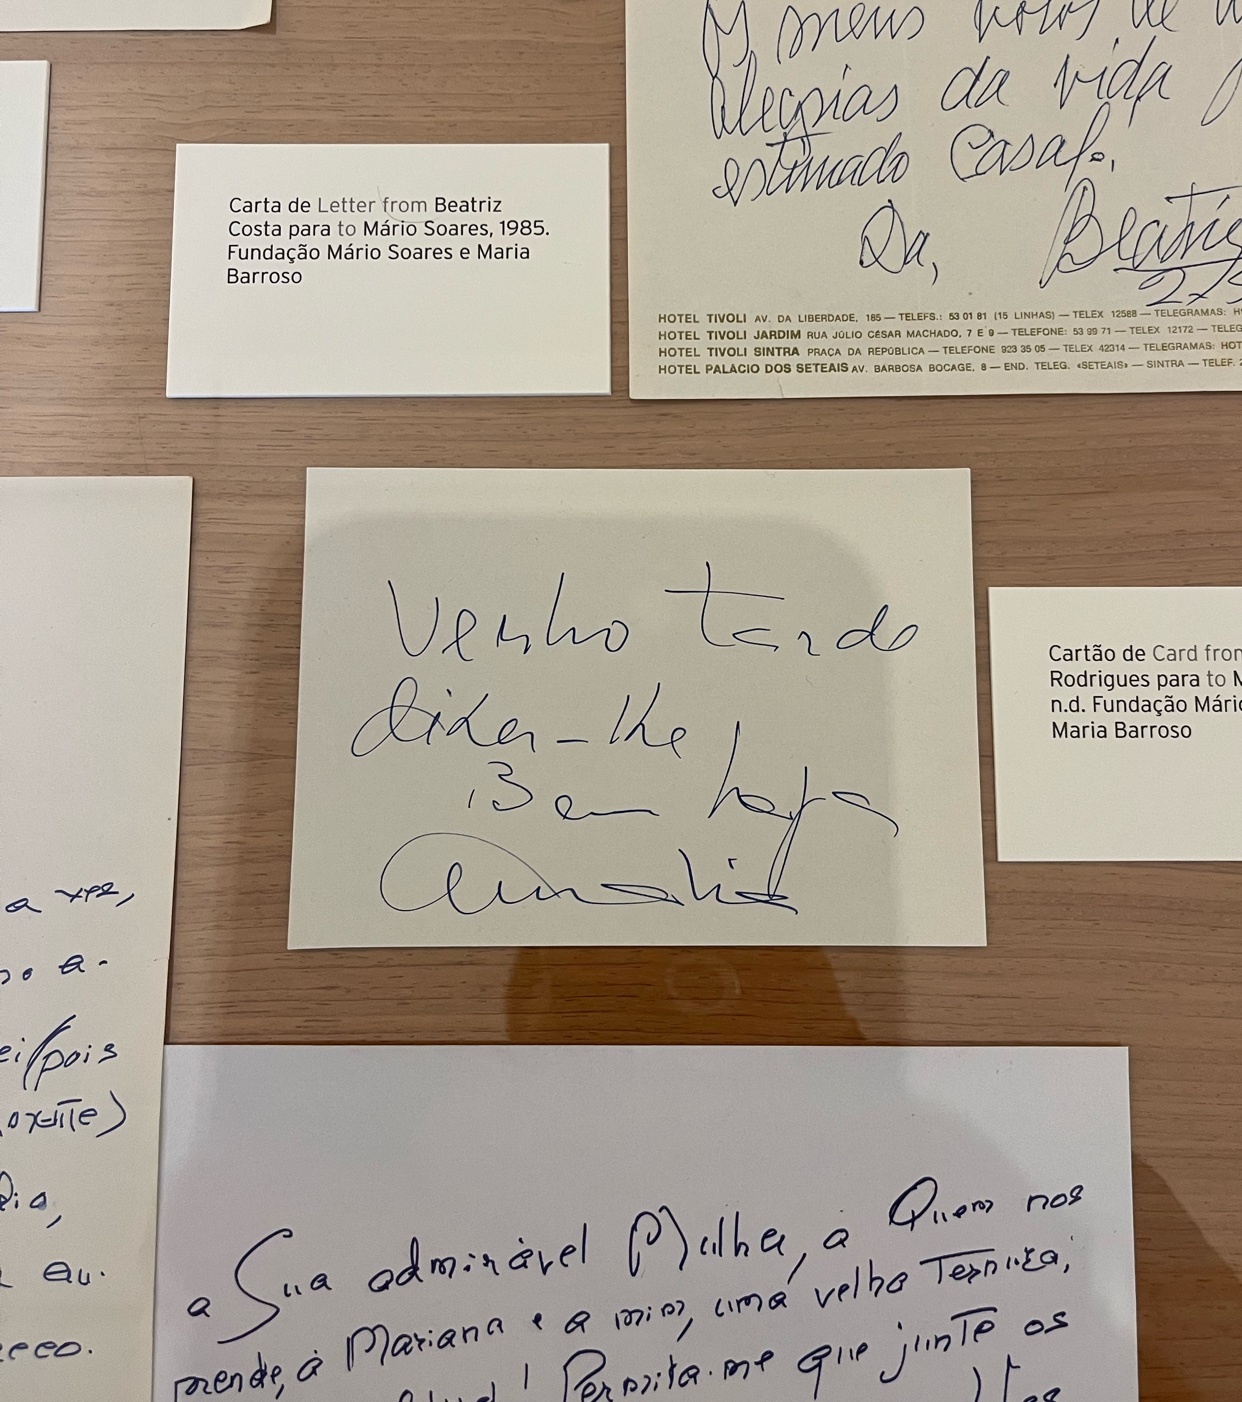 meus votos de
alegrias da vida
estimado Casal.
Da, Beatriz
HOTEL TIVOLI AV. DA LIBERDADE, 185 — TELEFS.: 53 01 81 (15 LINHAS) — TELEX 12588 — TELEGRAMAS:
HOTEL TIVOLI JARDIM RUA JÚLIO CÉSAR MACHADO, 7 E 9 — TELEFONE: 53 99 71 — TELEX 12172 —
HOTEL TIVOLI SINTRA PRAÇA DA REPÚBLICA — TELEFONE 923 35 05 — TELEX 42314 — TELEGRAMAS:
HOTEL PALÁCIO DOS SETEAIS AV. BARBOSA BOCAGE, 8 — END. TELEG. «SETEAIS» — SINTRA — TELEF.
Carta de Letter from Beatriz
Costa para to Mário Soares, 1985.
Fundação Mário Soares e Maria
Barroso
Venho tarde
dizer-lhe
Bem haja
Amália
Cartão de Card from
Rodrigues para to M
n.d. Fundação Mário
Maria Barroso
a vez,
a.
pois
a Sua admirável Mulher, a Quem nos
prende, à Mariana e a mim, uma velha Ternura;
Permita-me que junte os